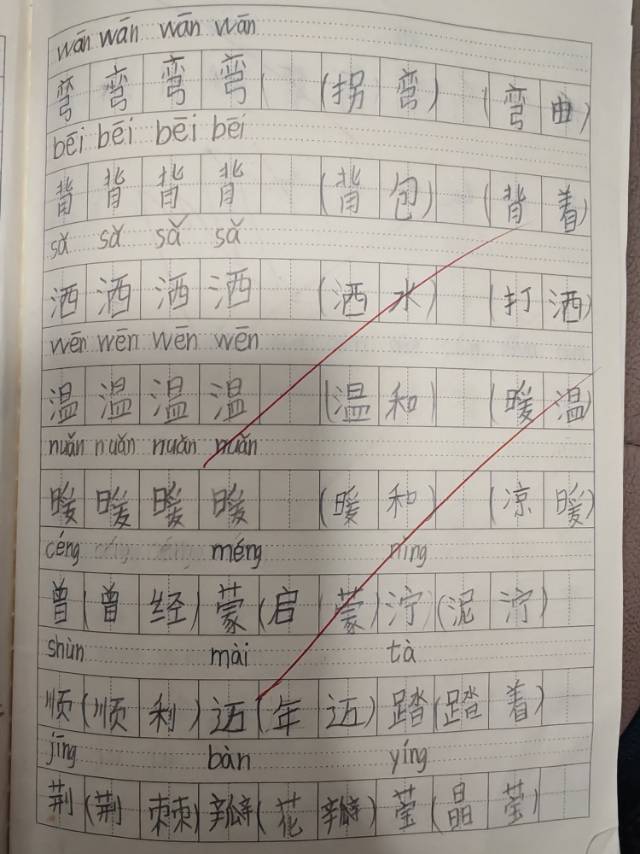 wān wān wān wān
弯 弯 弯 弯 (拐 弯) (弯 曲)
bēi bēi bēi bēi
背 背 背 背 (背 包) (背 着)
sǎ sǎ sǎ sǎ
洒 洒 洒 洒 (洒 水) (打 洒)
wēn wēn wēn wēn
温 温 温 温 (温 和) (暖 温)
nuǎn nuǎn nuǎn nuǎn
暖 暖 暖 暖 (暖 和) (凉 暖)
céng méng nìng
曾 (曾 经) 蒙 (启 蒙) 泞 (泥 泞)
shùn mài tà
顺 (顺 利) 迈 (年 迈) 踏 (踏 着)
jīng bàn yíng
荆 (荆 棘) 瓣 (花 瓣) 莹 (晶 莹)